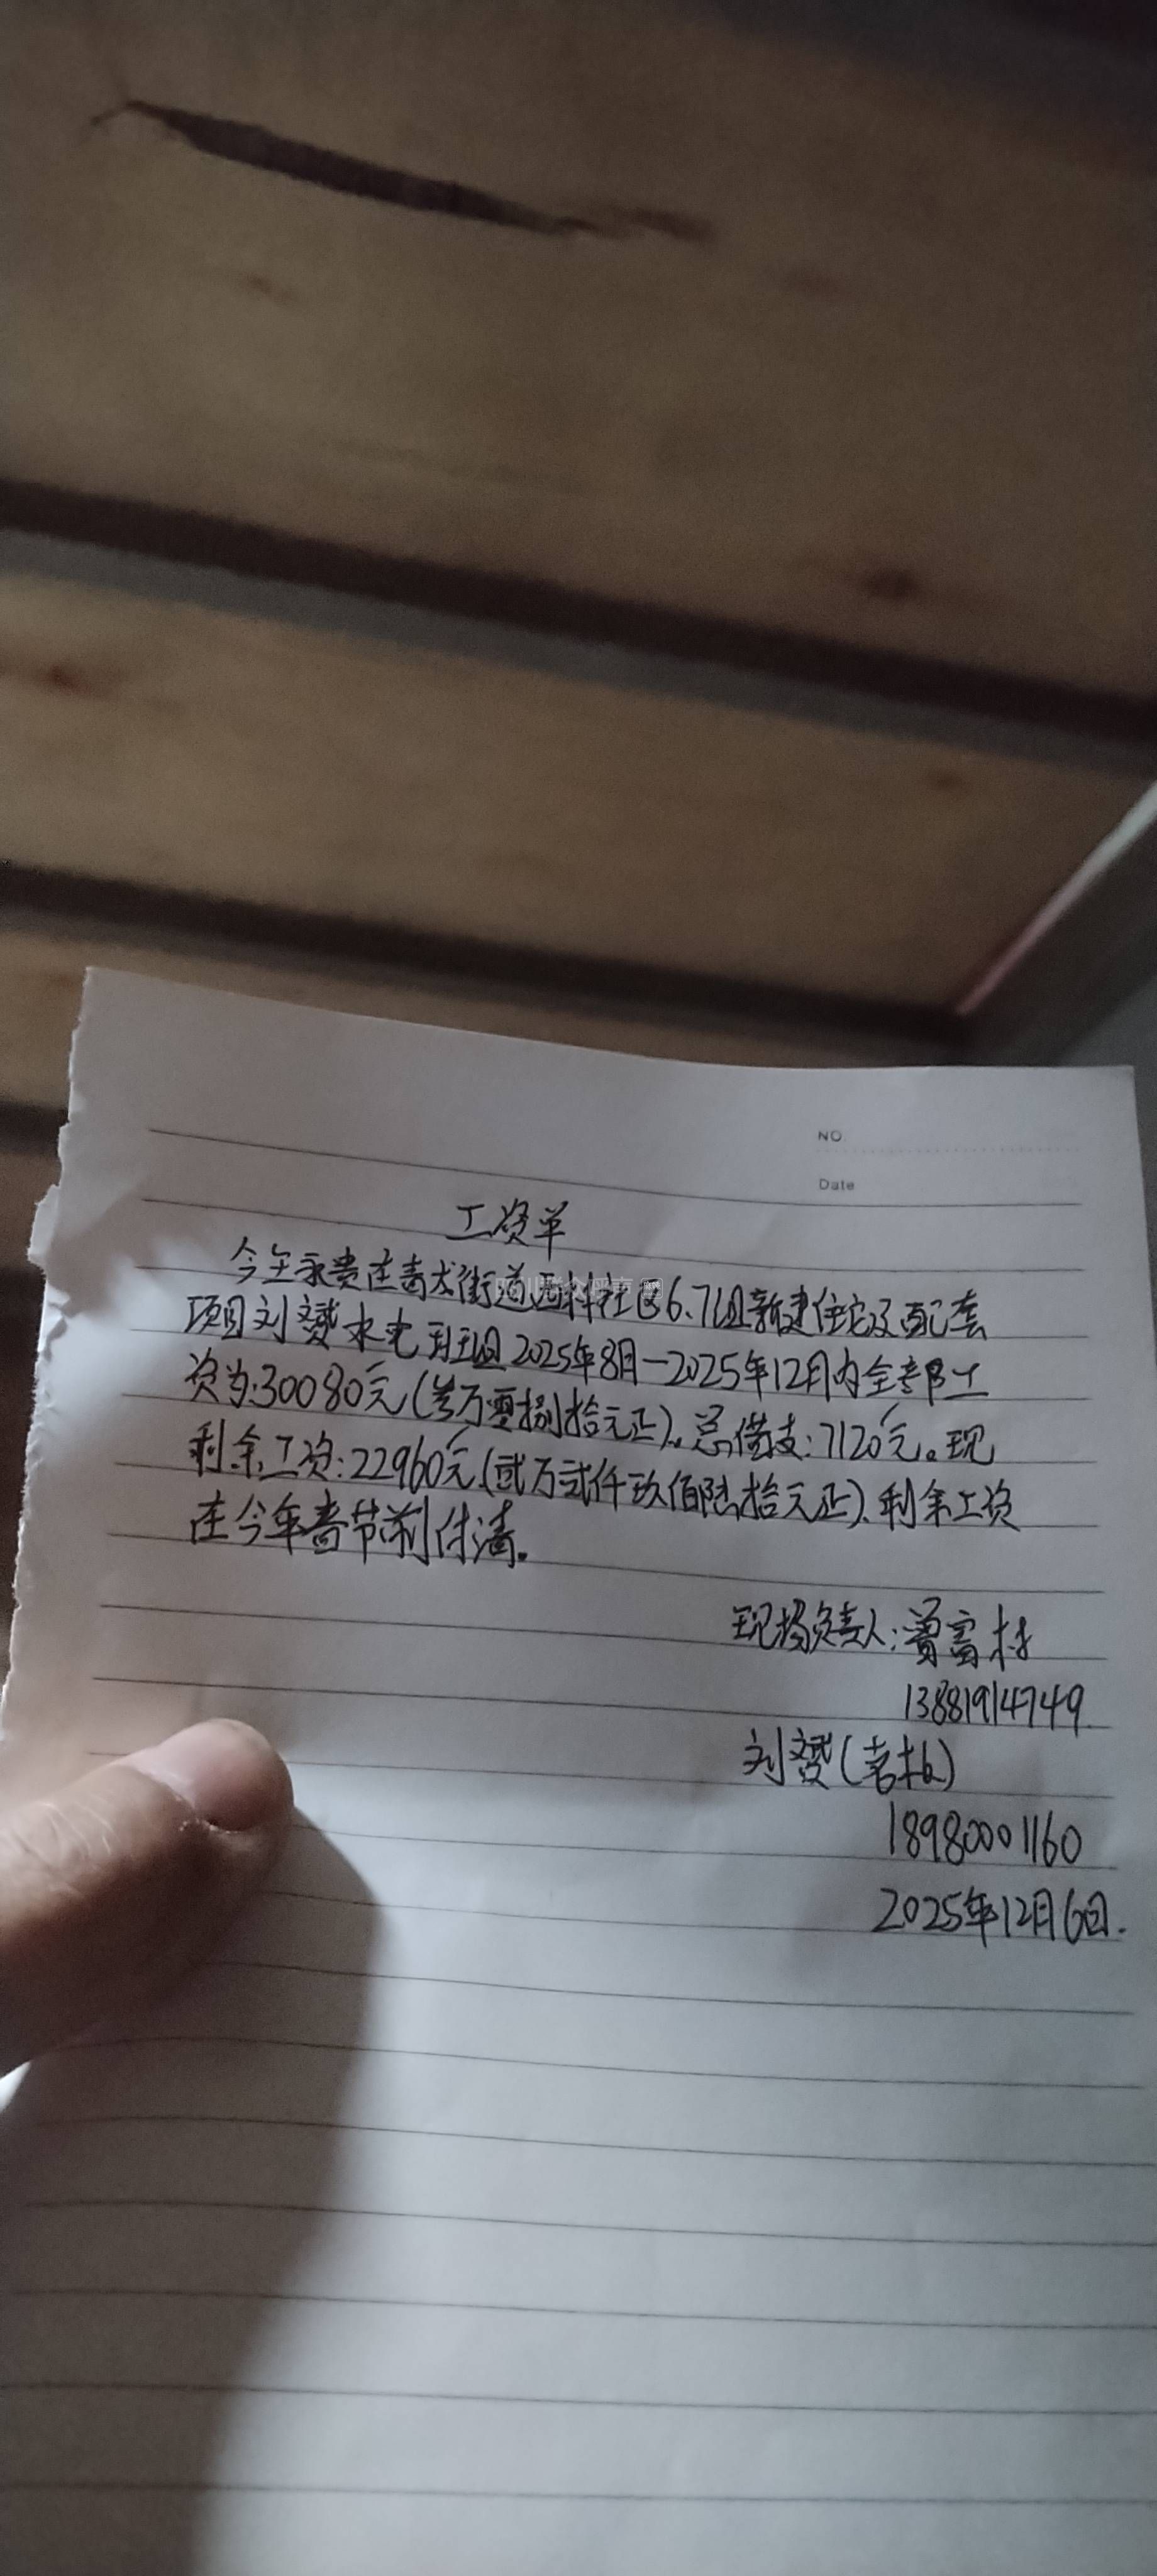 NO.
Date
工资单
今王永贵在青龙街道西林社区6.7组新建住宅及配套
项目刘赟水电班组2025年8月一2025年12月内全部工
资为:30080元(叁万零捌拾元正)。总借支:7120元。现
剩余工资:22960元(贰万贰仟玖佰陆拾元正)、剩余工资
在今年春节前付清。
现场负责人:曾富材
13881914749
刘赟(老板)
18980001160
2025年12月6日.